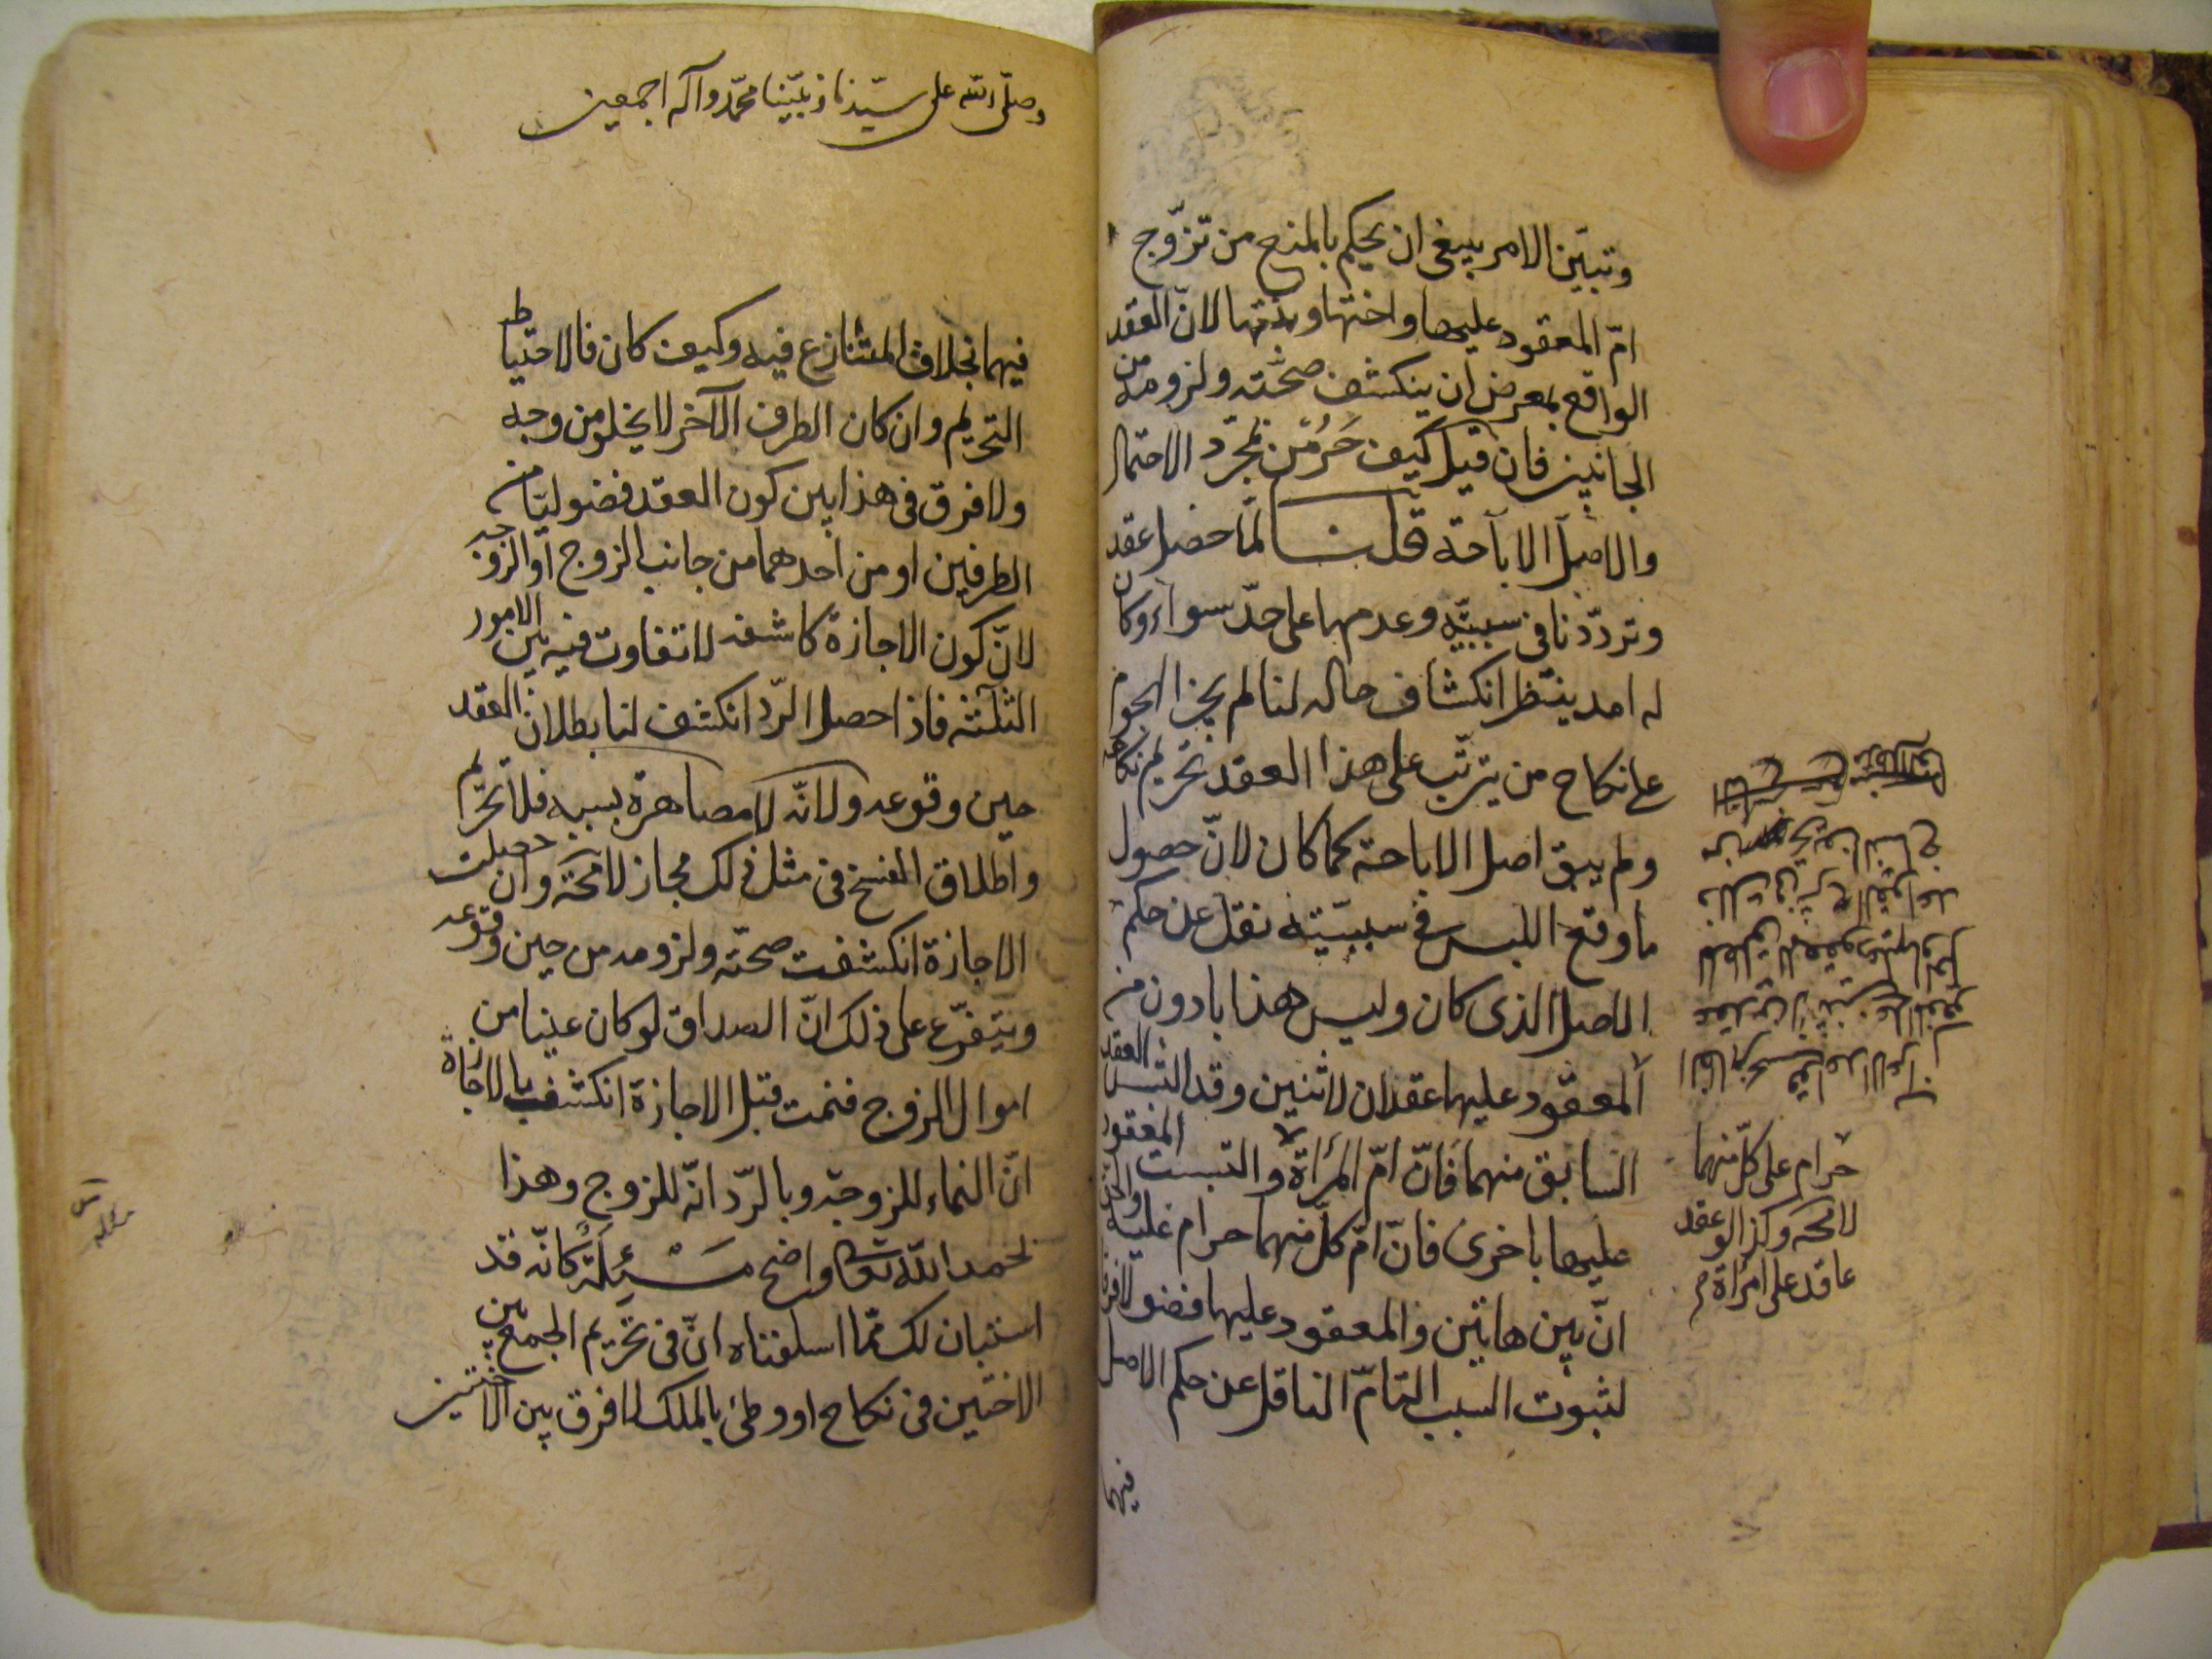 وتبيّن الامر ينبغى ان يحكم بالمنع من تزوّج
امّ المعقود عليها واختها وبنتها لانّ العقد
الواقع بمعرض ان ينكشف صحّته ولزومه من
الجانبين فان قيل كيف حَرُمْن بمجرّد الاحتمال
والاصل الاباحة قلنا لمّا حصل عقد
وتردّدنا فى سببيّته وعدمها على حدّ سواء وكان
له امد ينتظر انكشاف حاله لنا لم يجز الهجوم
على نكاح من يترتّب على هذا العقد تحريم نكاحه
ولم يبق اصل الاباحة كما كان لانّ حصول
ما وقع اللبس فى سببيّته نقل عن حكم
الاصل الذى كان وليس هذا بادون من
المعقود عليها عقدان لاثنين وقد التبس العقد
السابق منهما فانّ امّ المرأة والتبست المعقود
عليها باخرى فانّ امّ كلّ منهما حرام عليه
انّ بين هاتين والمعقود عليها فضولا فرق
لثبوت السبب التامّ الناقل عن حكم الاصل
فيهما
حرام على كلّ منهما
وكذا لو عقد
عاقد على امرأة
وصلّى الله على سيّدنا ونبيّنا محمّد وآله اجمعين
فيهما بخلاف المتنازع فيه وكيف كان فالاحتياط
التحريم وان كان الطرف الآخر لا يخلو من وجه
ولا فرق فى هذا بين كون العقد فضوليّا من
الطرفين او من احدهما من جانب الزوج او الزوجه
لانّ كون الاجازة كاشفه لا تفاوت فيه بين الامور
الثلثة فاذا حصل الردّ انكشف لنا بطلان العقد
حين وقوعه ولانّه لا مصاهرة بسببه فلا تحريم
واطلاق الفسخ فى مثل ذلك مجاز لامحة وان حصلت
الاجازة انكشفت صحّته ولزومه من حين وقوعه
ويتفرّع على ذلك انّ الصداق لو كان عينا من
اموال الزوج فنمت قبل الاجازة انكشف بالاجازة
انّ النماء للزوجة وبالردّ انّه للزوج وهذا
بحمد الله تعالى واضح مَسْئِلَةٌ كانّه قد
استبان لك ممّا اسلفناه انّ فى تحريم الجمع بين
الاختين فى نكاح او وطئ بالملك لا فرق بين الاختين